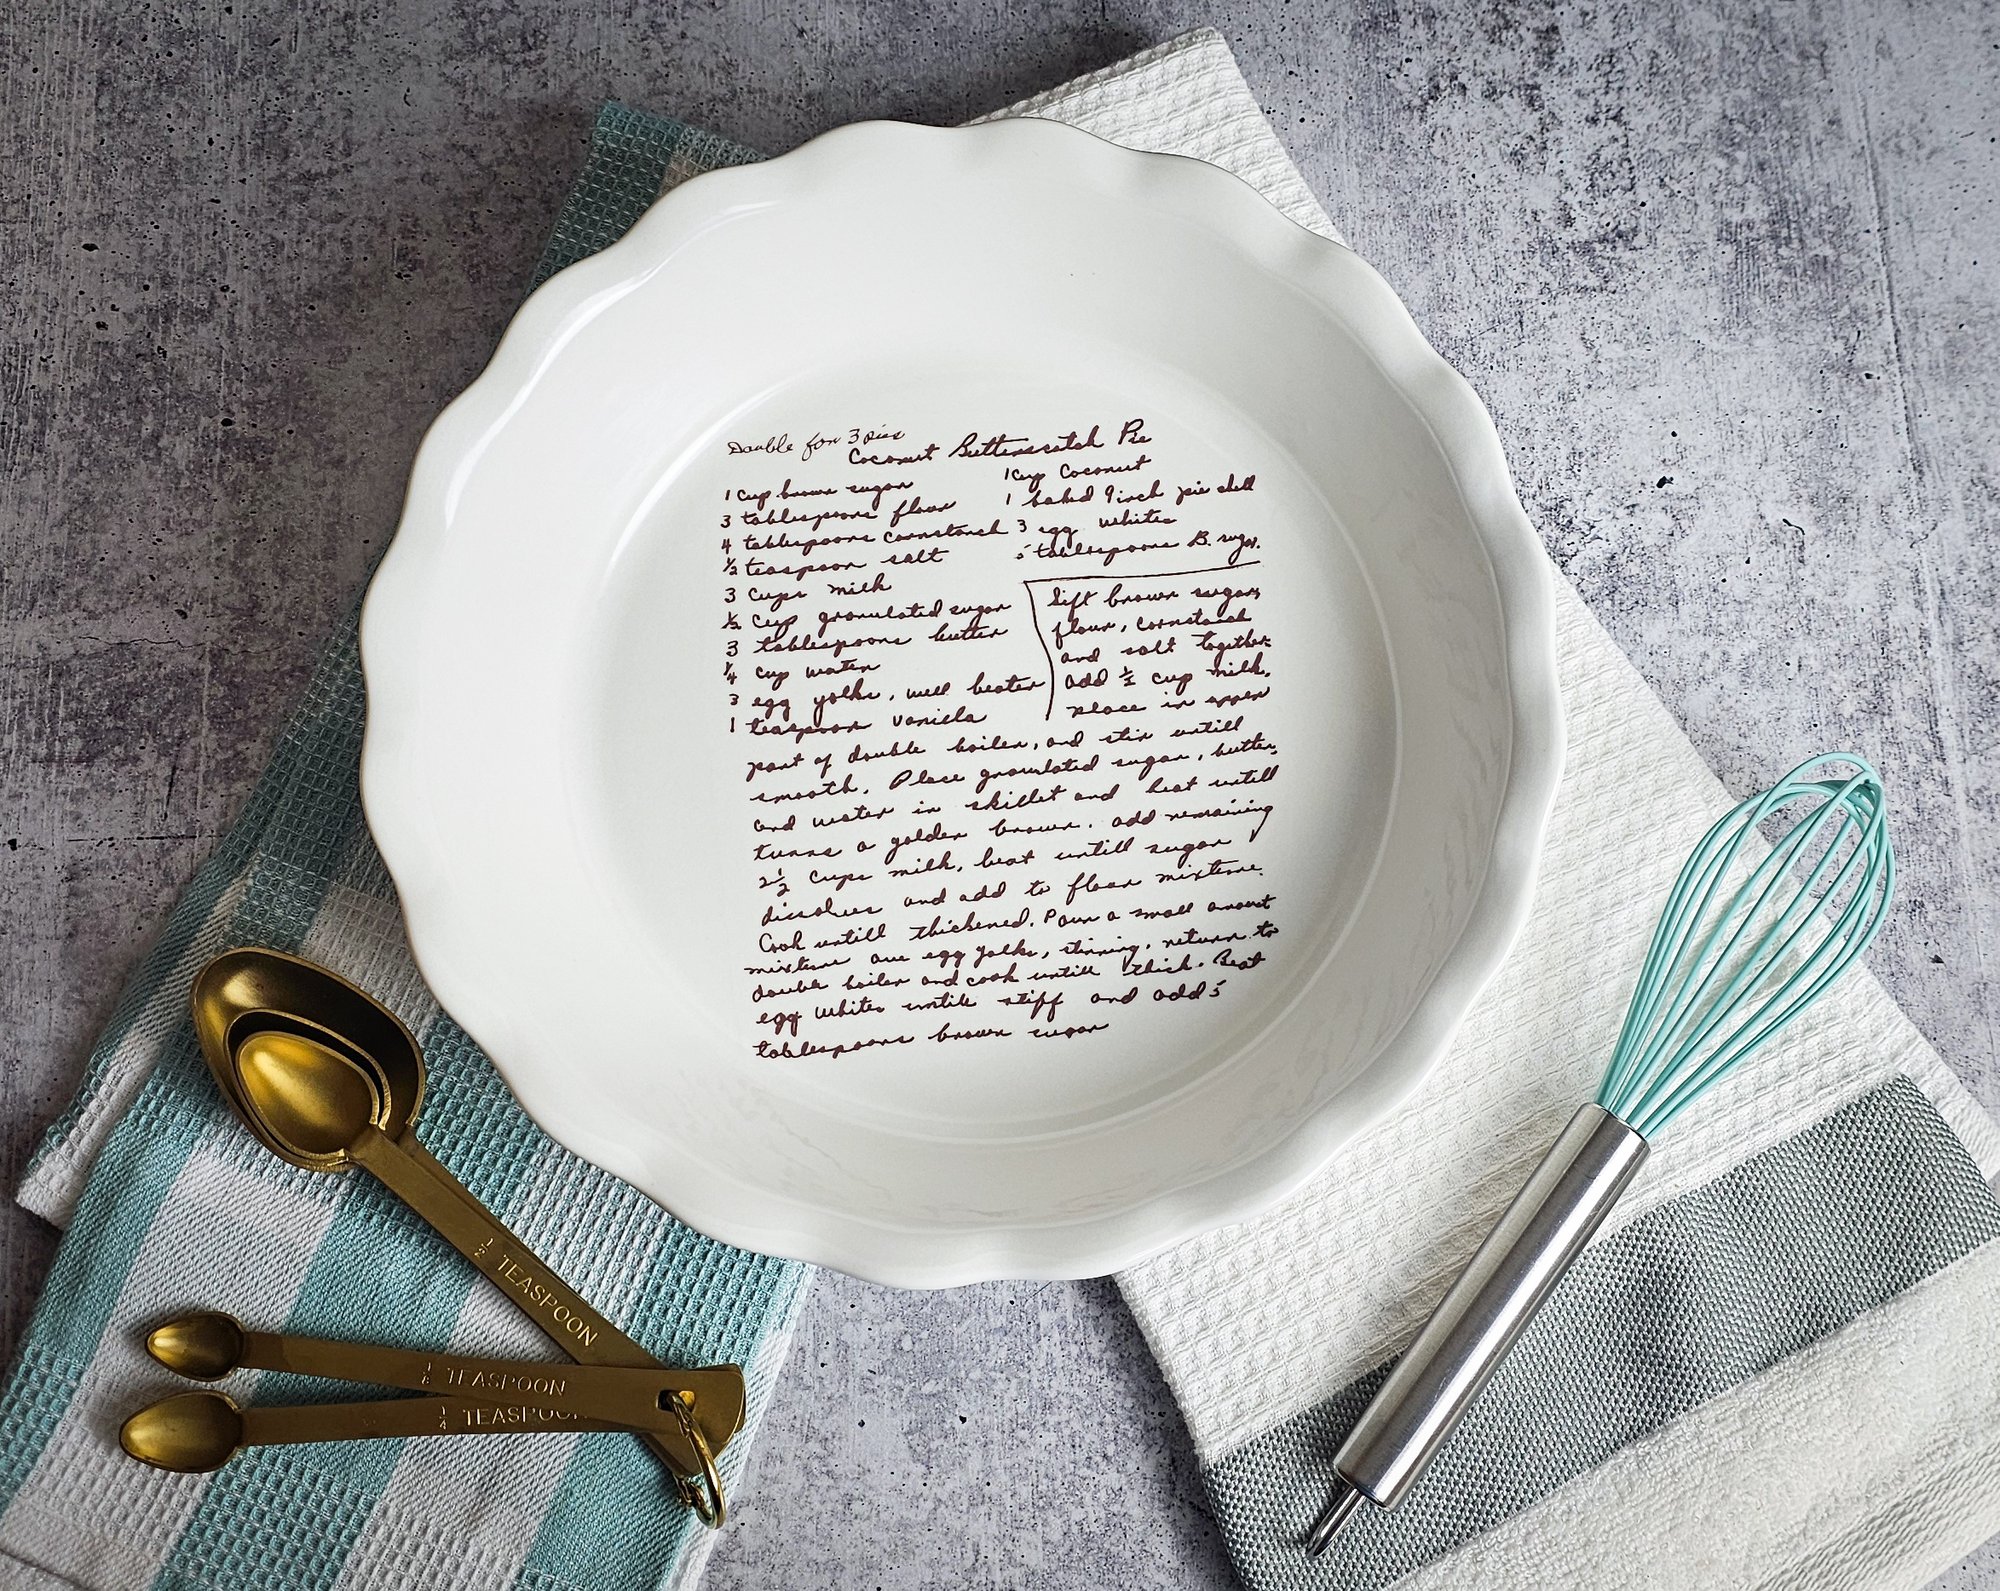 Double for 3 pies
Coconut Butterscotch Pie
1 cup brown sugar
3 tablespoons flour
4 tablespoons cornstarch
1/2 teaspoon salt
3 cups milk
1/2 cup granulated sugar
3 tablespoons butter
1/4 cup water
3 egg yolks, well beaten
1 teaspoon vanilla
1 cup Coconut
1 baked 9 inch pie shell
3 egg whites
5 tablespoons B. sugar.
Sift brown sugar,
flour, cornstarch
and salt together.
add 1/2 cup milk,
place in upper
part of double boiler, and stir untill
smooth. Place granulated sugar, butter,
and water in skillet and heat untill
turns a golden brown. add remaining
2 1/2 cups milk, heat untill sugar
dissolves and add to flour mixture.
Cook untill thickened. Pour a small amount
mixture over egg yolks, stirring, return to
double boiler and cook untill thick. Beat
egg whites untill stiff and add 5
tablespoons brown sugar
1/2 TEASPOON
1/8 TEASPOON
1/4 TEASPOON